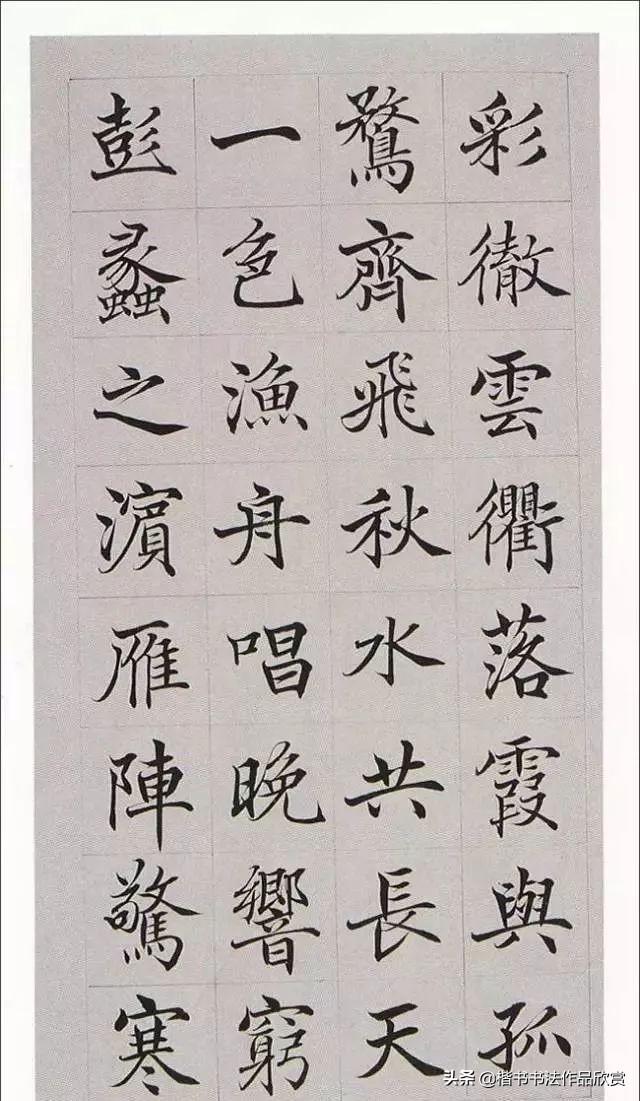 彩徹雲衢落霞與孤
鶩齊飛秋水共長天
一色漁舟唱晚響窮
彭蠡之濱雁陣驚寒
头条 @楷书书法作品欣赏